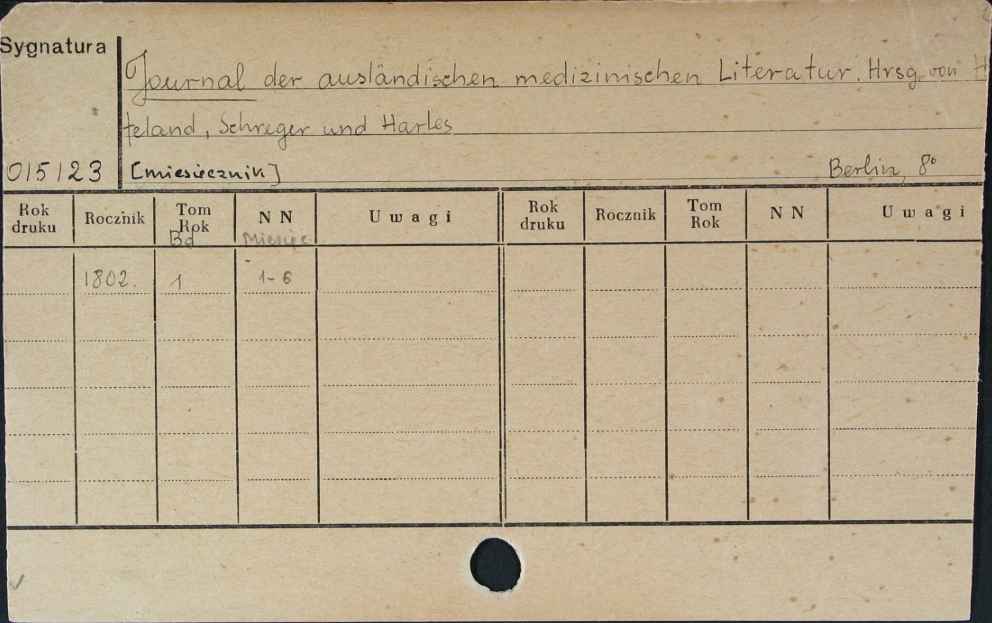 Sygnatura
Journal der ausländischen medizinischen Literatur. Hrsg. von H
feland, Schreger und Harles
015123 [miesięcznik] Berlin, 8°
Rok druku Rocznik Tom Rok N N Uwagi Rok druku Rocznik Tom Rok N N Uwagi
Bd Miesiąc
1802. 1 1-6